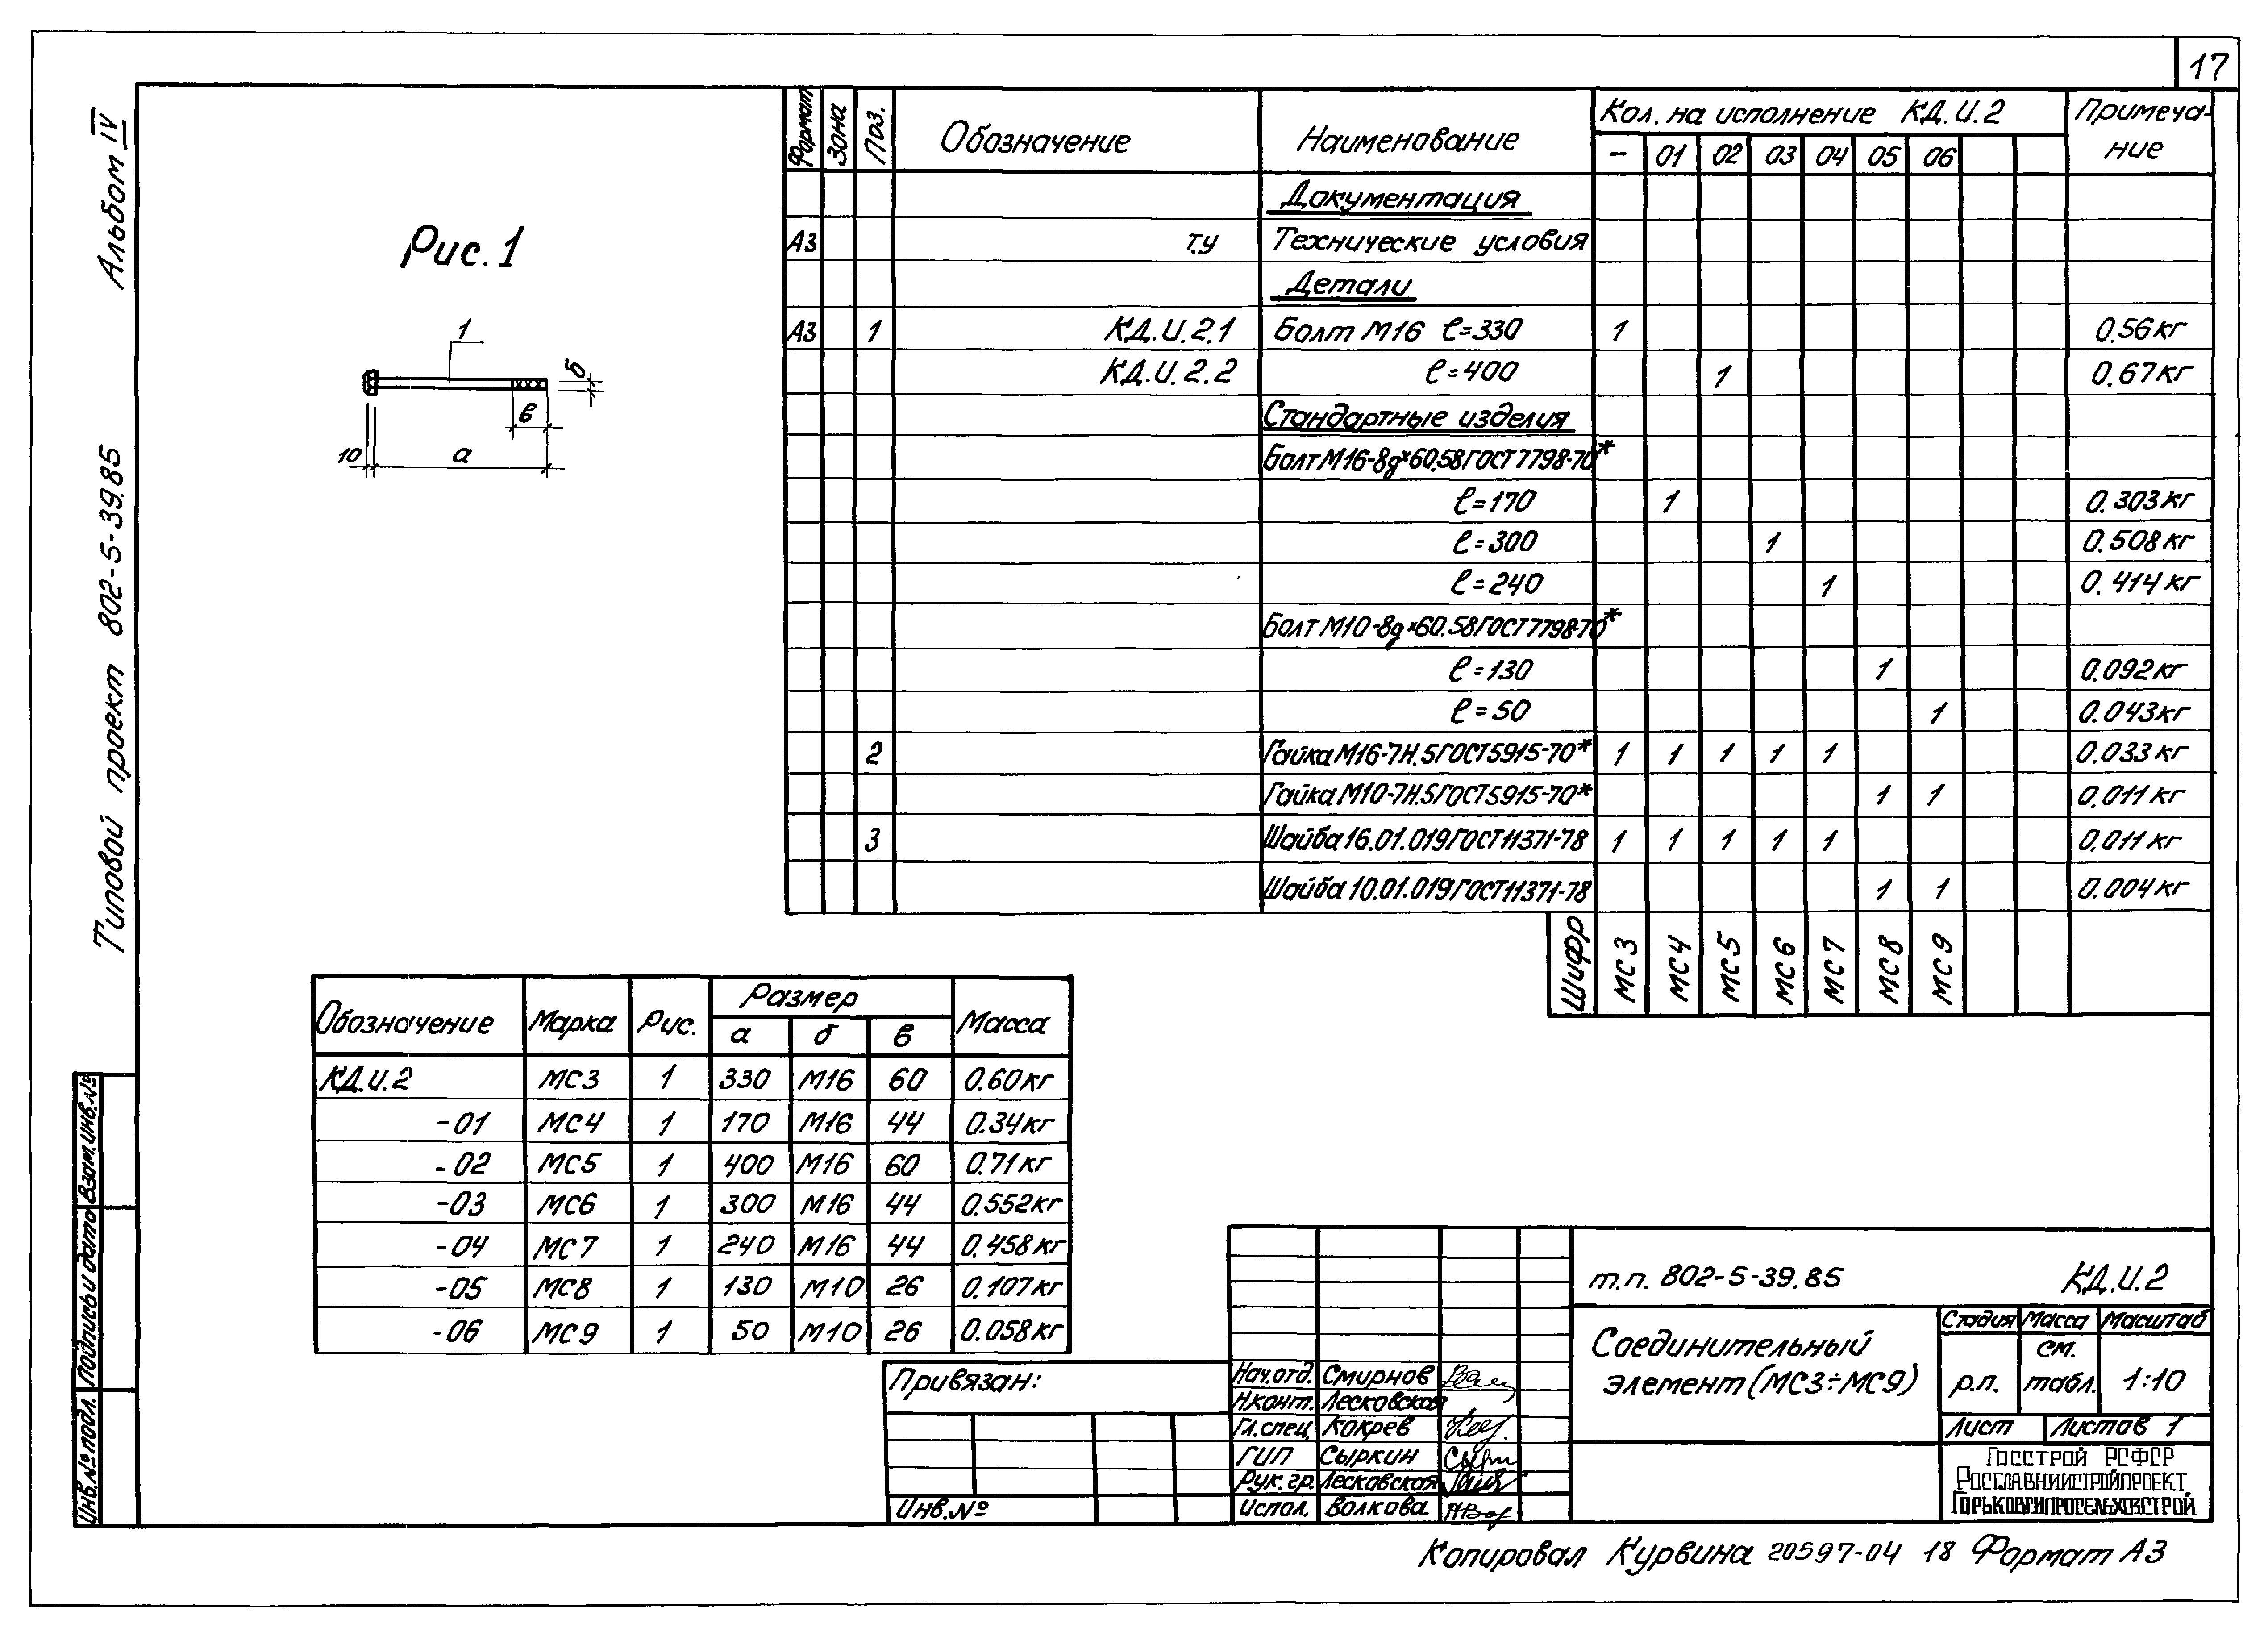 17
Альбом IV
Типовой проект 802-5-39.85
Рис. 1
1
б
в
10 а
Формат Зона Поз. Обозначение Наименование Кол. на исполнение КД.И.2 Примеча-
ние
– 01 02 03 04 05 06
Документация
А3 т.у Технические условия
Детали
А3 1 КД.И.2.1 Болт М16 ℓ=330 1 0.56кг
КД.И.2.2 ℓ=400 1 0.67кг
Стандартные изделия
Болт М16-8g×60.58 ГОСТ 7798-70*
ℓ=170 1 0.303кг
ℓ=300 1 0.508кг
ℓ=240 1 0.414кг
Болт М10-8g×60.58 ГОСТ 7798-70*
ℓ=130 1 0.092кг
ℓ=50 1 0.043кг
2 Гайка М16-7Н.5 ГОСТ 5915-70* 1 1 1 1 1 0.033кг
Гайка М10-7Н.5 ГОСТ 5915-70* 1 1 0.011кг
3 Шайба 16.01.019 ГОСТ 11371-78 1 1 1 1 1 0.011кг
Шайба 10.01.019 ГОСТ 11371-78 1 1 0.004кг
Шифр МС3 МС4 МС5 МС6 МС7 МС8 МС9
Обозначение Марка Рис. Размер Масса
а б в
КД.И.2 МС3 1 330 М16 60 0.60кг
-01 МС4 1 170 М16 44 0.34кг
-02 МС5 1 400 М16 60 0.71кг
-03 МС6 1 300 М16 44 0.552кг
-04 МС7 1 240 М16 44 0.458кг
-05 МС8 1 130 М10 26 0.107кг
-06 МС9 1 50 М10 26 0.058кг
Взам.инв.№
Подпись и дата
Инв.№ подл.
Привязан:
Инв.№
т.п. 802-5-39.85 КД.И.2
Соединительный
элемент (МС3÷МС9)
Стадия Масса Масштаб
р.п. см.
табл. 1:10
Лист Листов 1
Нач.отд. Смирнов
Н.конт. Лесковская
Гл.спец. Кокрев
ГИП Сыркин
Рук.гр. Лесковская
Испол. Волкова
Госстрой РСФСР
Росглавниистройпроект
Горьковгипросельхозстрой
Копировал Курвина 20597-04 18 Формат А3